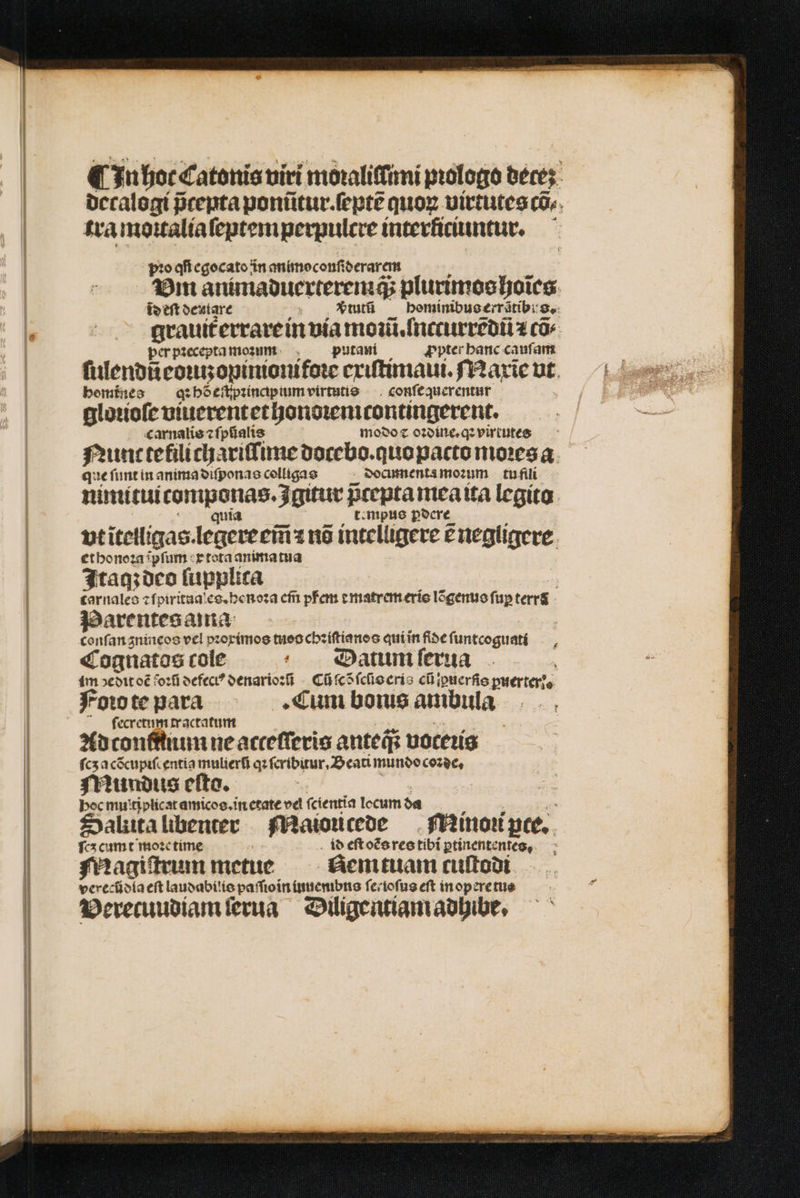 ¶ In hoc Catonis viri moralissimi prologo decez
decalogi p̄cepta ponūtur. septē quoꝝ virtutes cō⸗
tra mortalia septem perpulcre interficiuntur.
pro qn̄ ego cato in animo considerarem
Vm animaduerterem qꝫ plurimos hoīes
id est deuiare v̄tutū hominibus errātibus.
grauit̄ errare in via morū. succurrēdū ⁊ cō⸗
per precepta morum putaui ꝓpter hanc causam
sulendū eoruꝫ opinioni fore existimaui. Maxīe vt
homines qꝛ hō est principium virtutis consequerentur
gloriose viuerent et honorem contingerent.
carnalis ⁊ sp̄ualis modo ⁊ ordine. qꝛ virtutes
Nunc te fili charissime docebo. quo pacto mores a
que sunt in anima disponas colligas documenta morum tu fili
nimi tui componas. Igitur p̄cepta mea ita legito
quia tempus ꝑdere
vt ītelligas. legere em̄ ⁊ nō intelligere ē negligere
et honora ipsum ex tota anima tua
Itaqꝫ deo supplica
carnales ⁊ spirituales. honora em̄ pr̄em ⁊ matrem eris lōgenus suꝑ terrā
Parentes ama
consanguineos vel proximos tuos christianos qui in fide sunt coguati
Cognatos cole Datum serua
Cū scō scūs eris cū ꝑuersis ꝑuerteris
Foro te para Cum bonis ambula
secretum tractatum
Ad consilium ne accesseris anteqꝫ voceris
scꝫ a cōcupiscentia mulierū qꝛ scribitur. Beati mundo corde.
Mundus esto.
hoc multiplicat amicos. in etate vel scientia locum da
Saluta libenter Maiori cede Minori ꝑce.
scꝫ cum timore time id est oēs res tibi ꝑtinententes,
Magistrum metue Rem tuam custodi
verecūdia est laudabilis passio in iuuenibus seriosus est in opere tuo
Verecuudiam serua Diligentiam adhibe.